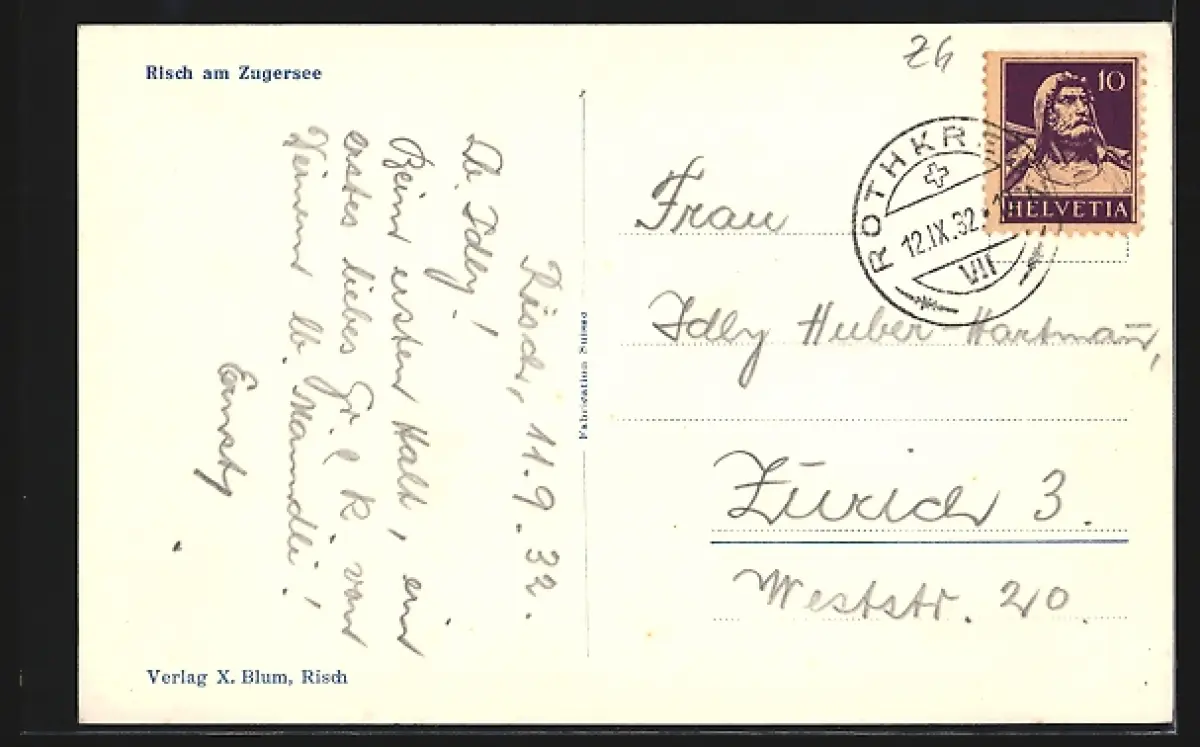 Risch am Zugersee
Risch, 11.9.32.
Lb. Idly!
Beim ersten Halt, ein
erstes liebes Gr. & K. von
Deinem lb. Manndli!
Ernsty
Verlag X. Blum, Risch
Fabrication Suisse
Zh
10
HELVETIA
ROTHKR
12.IX.32
VII
Frau
Idly Huber-Hartmañ,
Zürich 3.
Weststr. 20.